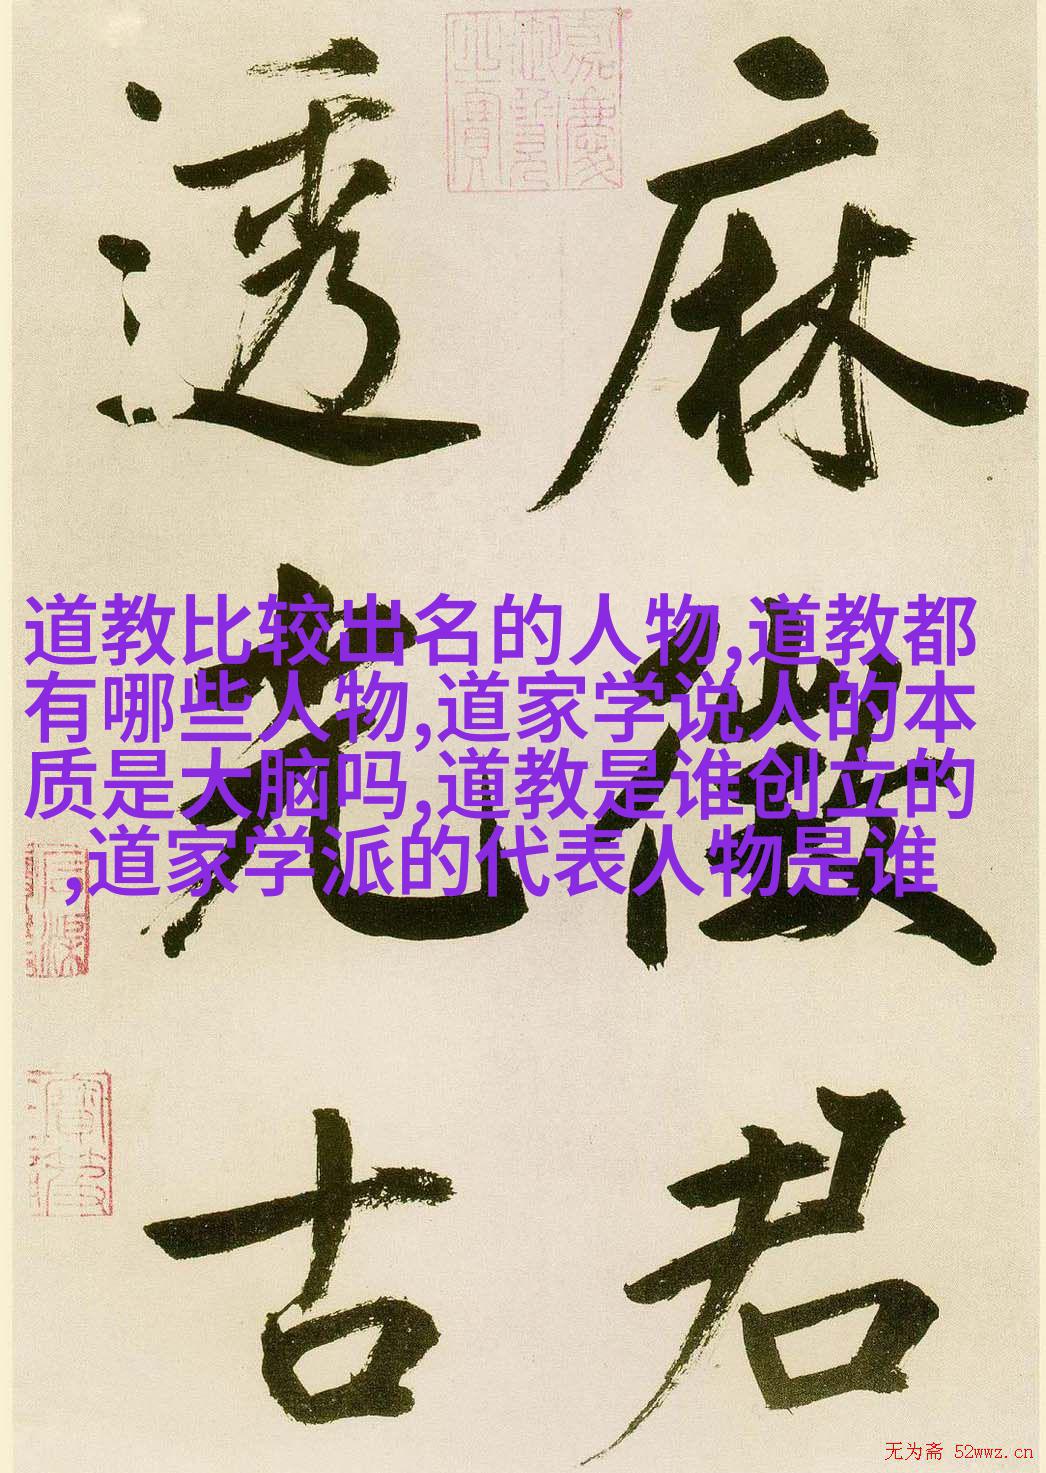 嘉慶
御覽
之寶
麻徵君
透光古
道教比较出名的人物,道教都
有哪些人物,道家学说人的本
质是大脑吗,道教是谁创立的
,道家学派的代表人物是谁
无为斋 52wwz.cn